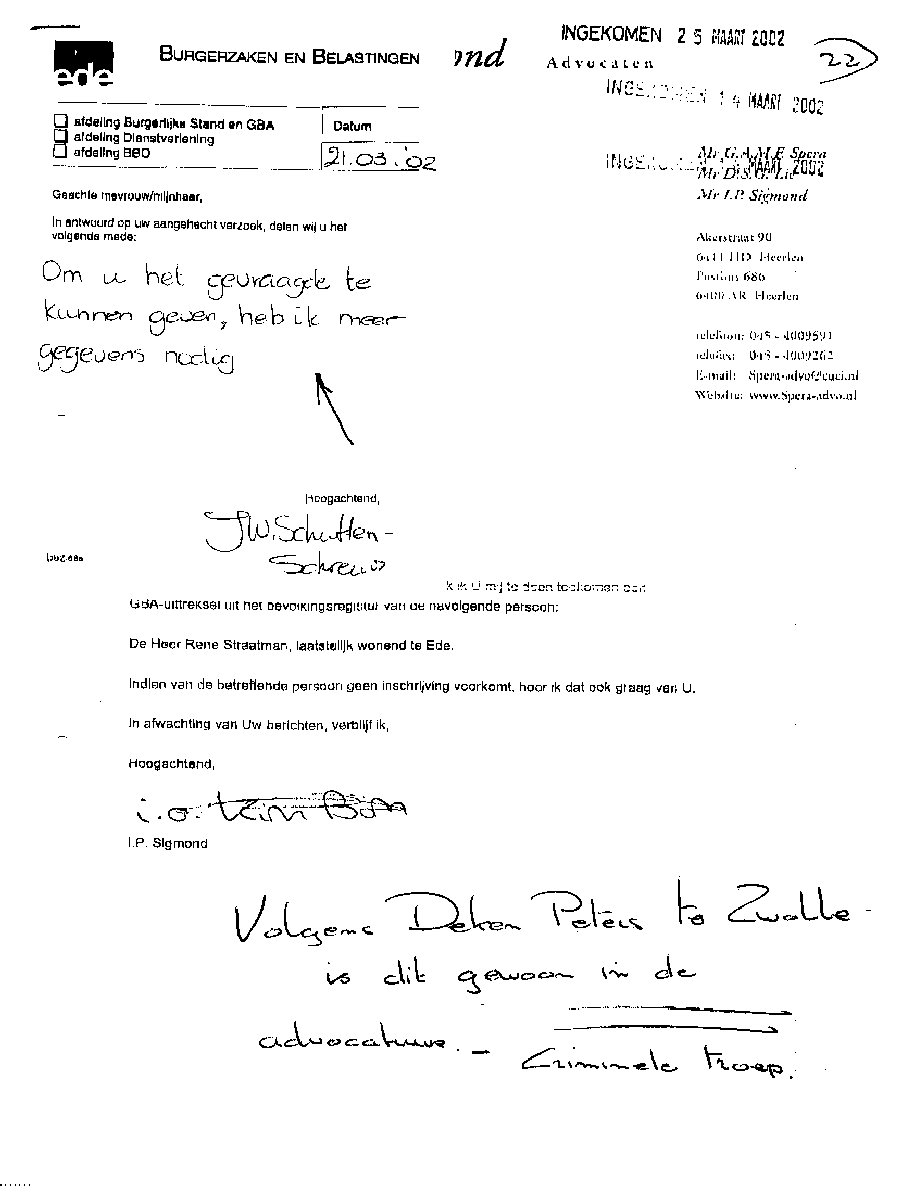 INGEKOMEN 25 MAART 2002
ede
BURGERZAKEN EN BELASTINGEN
ond
Advocaten
22
INGEKOMEN 14 MAART 2002
afdeling Burgerlijke Stand en GBA
afdeling Dienstverlening
afdeling BBO
Datum
21.03.'02
INGEKOMEN 14 MAART 2002
Mr G.A.M.F. Spera
Mr I.P. Sigmond
Geachte mevrouw/mijnheer,
In antwoord op uw aangehecht verzoek, delen wij u het
volgende mede:
Om u het gevraagde te
kunnen geven, heb ik meer
gegevens nodig
Akerstraat 90
6411 HD Heerlen
Postbus 686
6400 AR Heerlen
telefoon: 045 - 4009591
telefax: 045 - 4009262
E-mail: Spera-advo@cuci.nl
Website: www.Spera-advo.nl
Hoogachtend,
JW. Schutten-
Schreus
k ik U mij te doen toekomen een
GBA-uittreksel uit het bevolkingsregister van de navolgende persoon:
De Heer Rene Straatman, laatstelijk wonend te Ede.
Indien van de betreffende persoon geen inschrijving voorkomt, hoor ik dat ook graag van U.
In afwachting van Uw berichten, verblijf ik,
Hoogachtend,
i.o.
I.P. Sigmond
Volgens Deken Peters te Zwolle -
is dit gewoon in de
advocatuur. - Criminele troep.